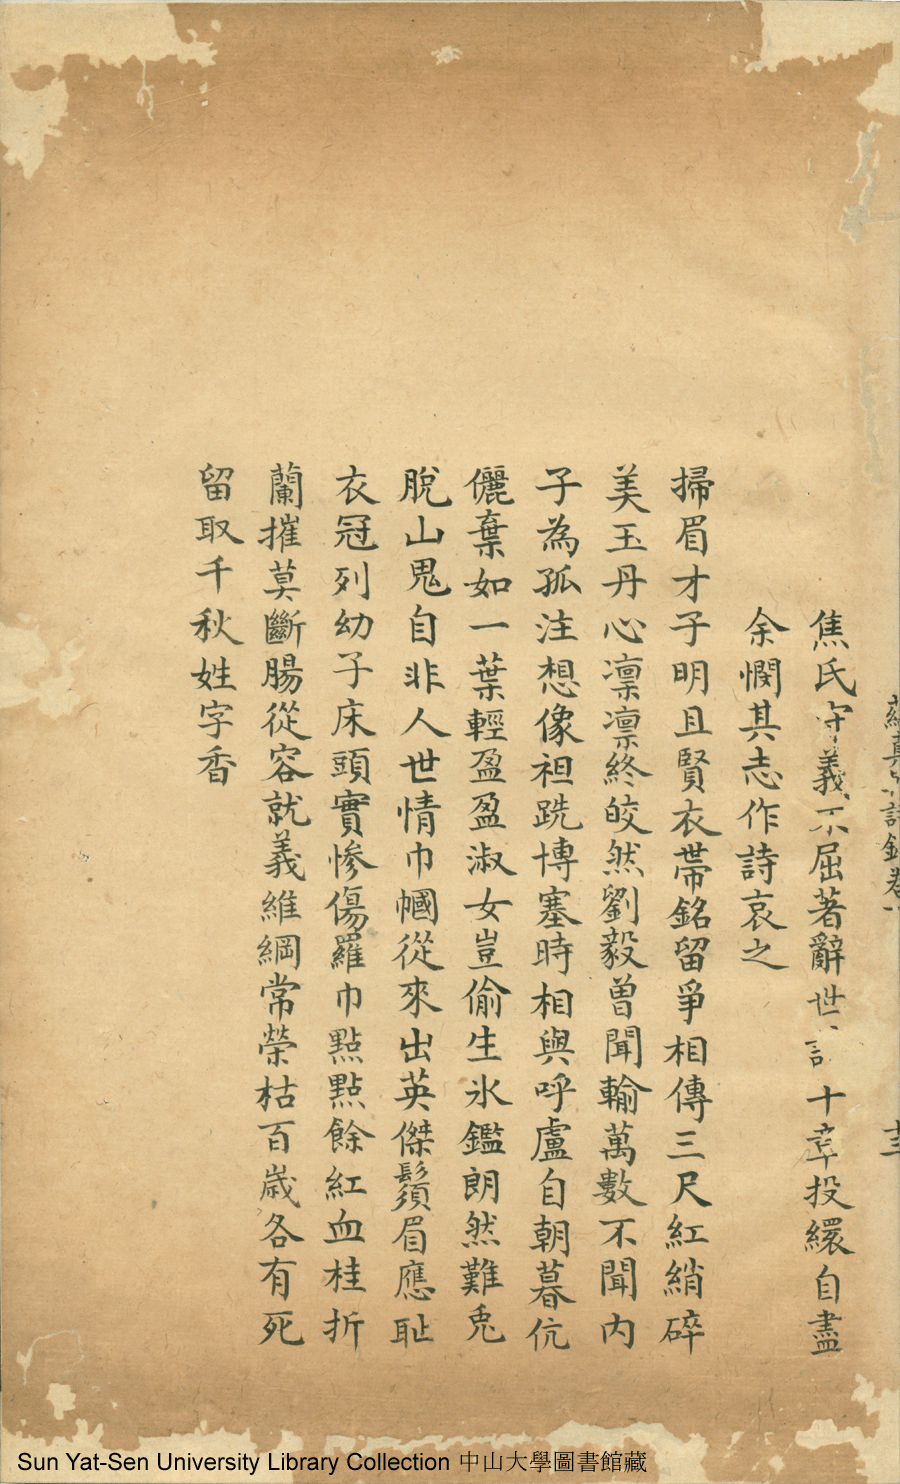 焦氏守義不屈著辭世詩十章投繯自盡
余憫其志作詩哀之
掃眉才子明且賢衣帶銘留爭相傳三尺紅綃碎
美玉丹心凛凛終皎然劉毅曾聞輸萬數不聞内
子為孤注想像袒跣博塞時相與呼盧自朝暮伉
儷棄如一葉輕盈盈淑女豈偷生氷鑑朗然難兎
脫山鬼自非人世情巾幗從來出英傑鬚眉應耻
衣冠列幼子床頭實慘傷羅巾點點餘紅血桂折
蘭摧莫斷腸從容就義維綱常榮枯百歲各有死
留取千秋姓字香
Sun Yat-Sen University Library Collection 中山大學圖書館藏